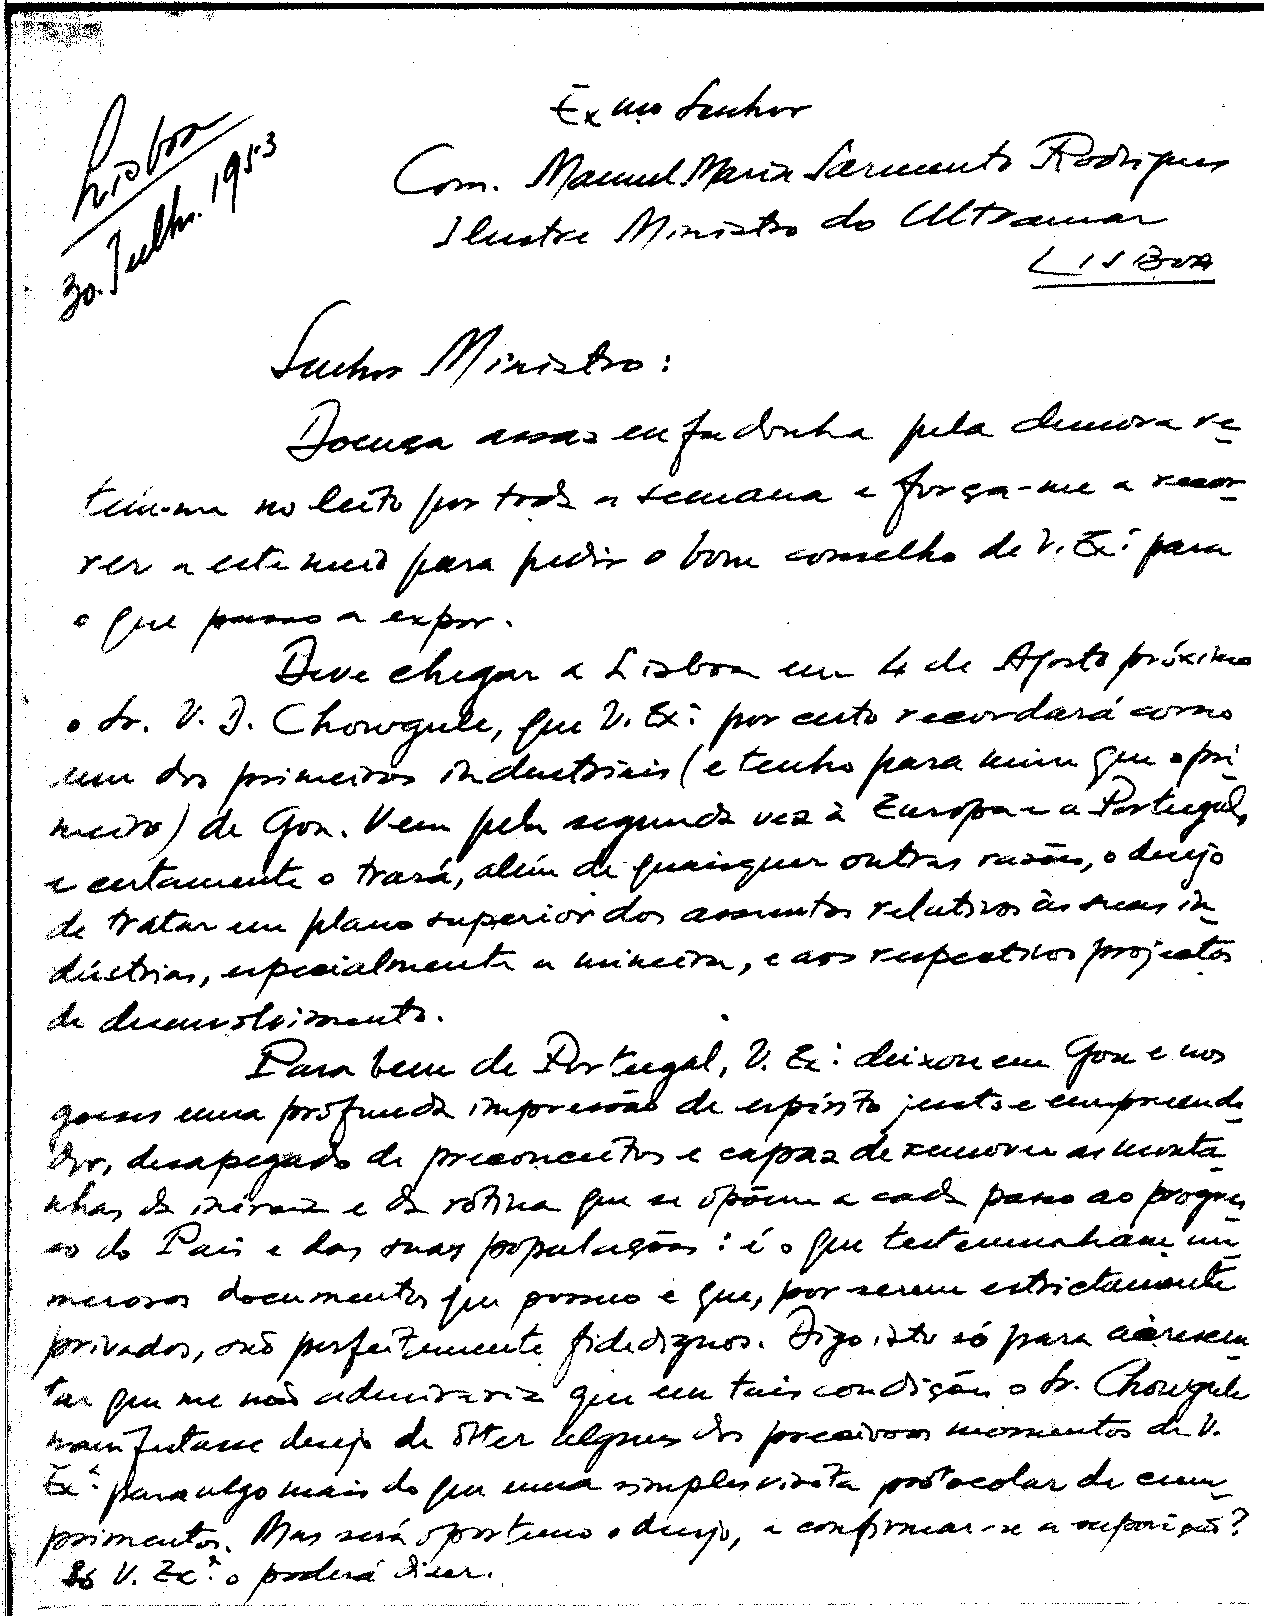 Lisboa
30. Julh. 1953
Exmo Senhor
Com. Manuel Maria Sarmento Rodrigues
Ilustre Ministro do Ultramar
LISBOA
Senhor Ministro:
Doença assas enfadonha pela demora re-
tém-me no leito por toda a semana e força-me a recor-
rer a este meio para pedir o bom conselho de V. Exª para
o que passo a expor.
Deve chegar a Lisboa em 4 de Agosto próximo
o Sr. V. D. Chowgule, que V. Exª por certo recordará como
um dos primeiros industriais (e tenho para mim que o pri-
meiro) de Goa. Vem pela segunda vez à Europa e a Portugal,
e certamente o trará, além de quaisquer outras razões, o desejo
de tratar em plano superior dos assuntos relativos às suas in-
dústrias, especialmente a mineira, e aos respectivos projectos
de desenvolvimento.
Para bem de Portugal, V. Exª deixou em Goa e nos
goeses uma profunda impressão de espírito justo e empreende-
dor, desapegado de preconceitos e capaz de remover as monta-
nhas da inércia e da rotina que se opõem a cada passo ao progres-
so do País e das suas populações: é o que testemunham nu-
merosos documentos que possuo e que, por serem estrictamente
privados, são perfeitamente fidedignos. Digo isto só para acrescen-
tar que me não admiraria que em tais condições o Sr. Chowgule
manifestasse desejo de obter alguns dos preciosos momentos de V.
Exª para algo mais do que uma simples visita protocolar de cum-
primentos. Mas será oportuno o desejo, a confirmar-se a suposição?
Só V. Exª o poderá dizer.